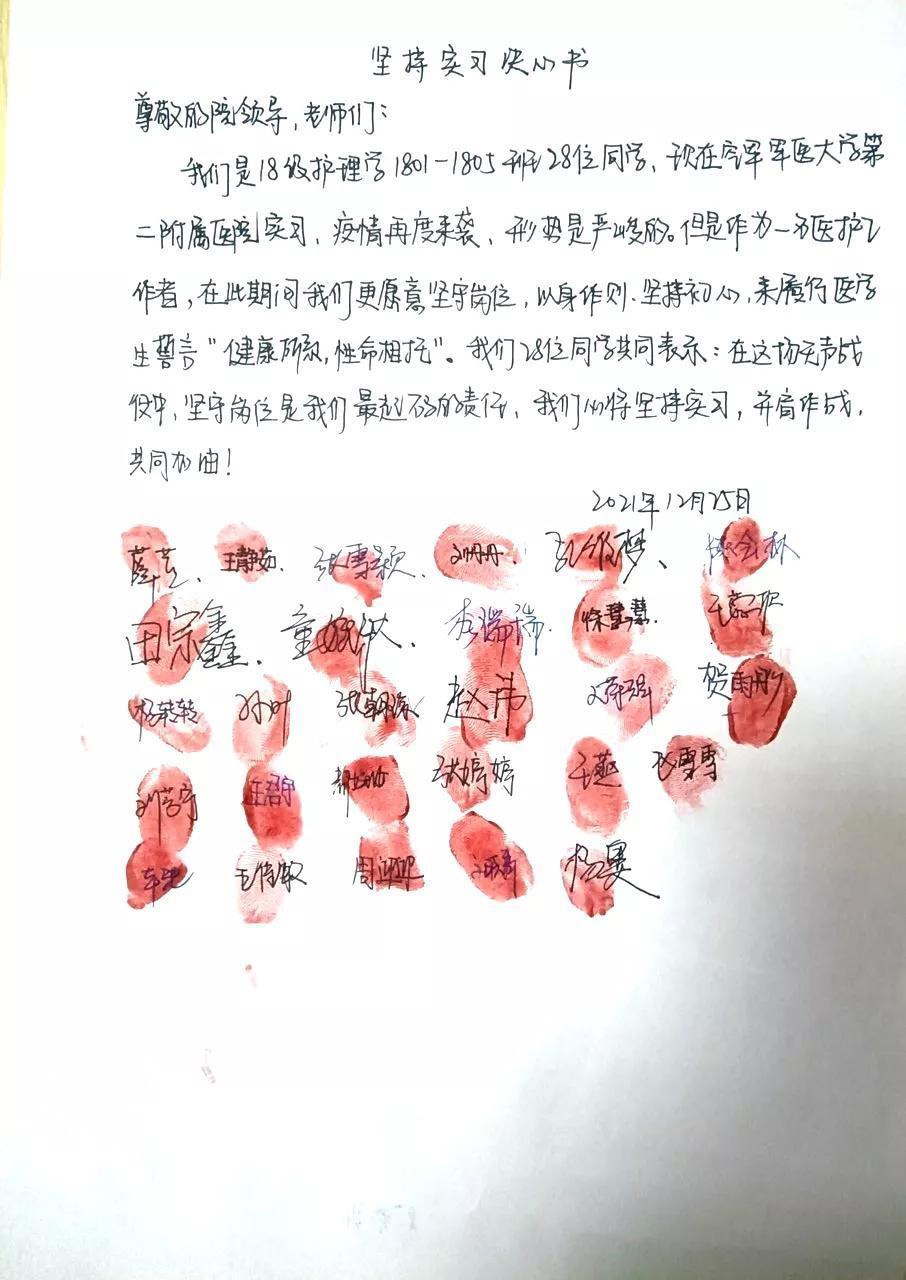 坚持实习决心书
尊敬的院领导,老师们:
我们是18级护理学1801-1805班28位同学,现在空军军医大学第
二附属医院实习,疫情再度来袭,形势是严峻的。但是作为一名医护工
作者,在此期间我们更愿意坚守岗位,以身作则.坚持初心,来履行医学
生誓言"健康所系,性命相托"。我们28位同学共同表示:在这场无声战
役中,坚守岗位是我们最起码的责任,我们必将坚持实习,并肩作战,
共同加油!
2021年12月25日
王静茹.张雪颖.刘丹丹.
田宗鑫.童婉依.李瑞瑞.徐慧慧.
杨转转 孙叶 赵伟 贺雨彤
张婷婷 王燕 赵雪雪
周迎迎